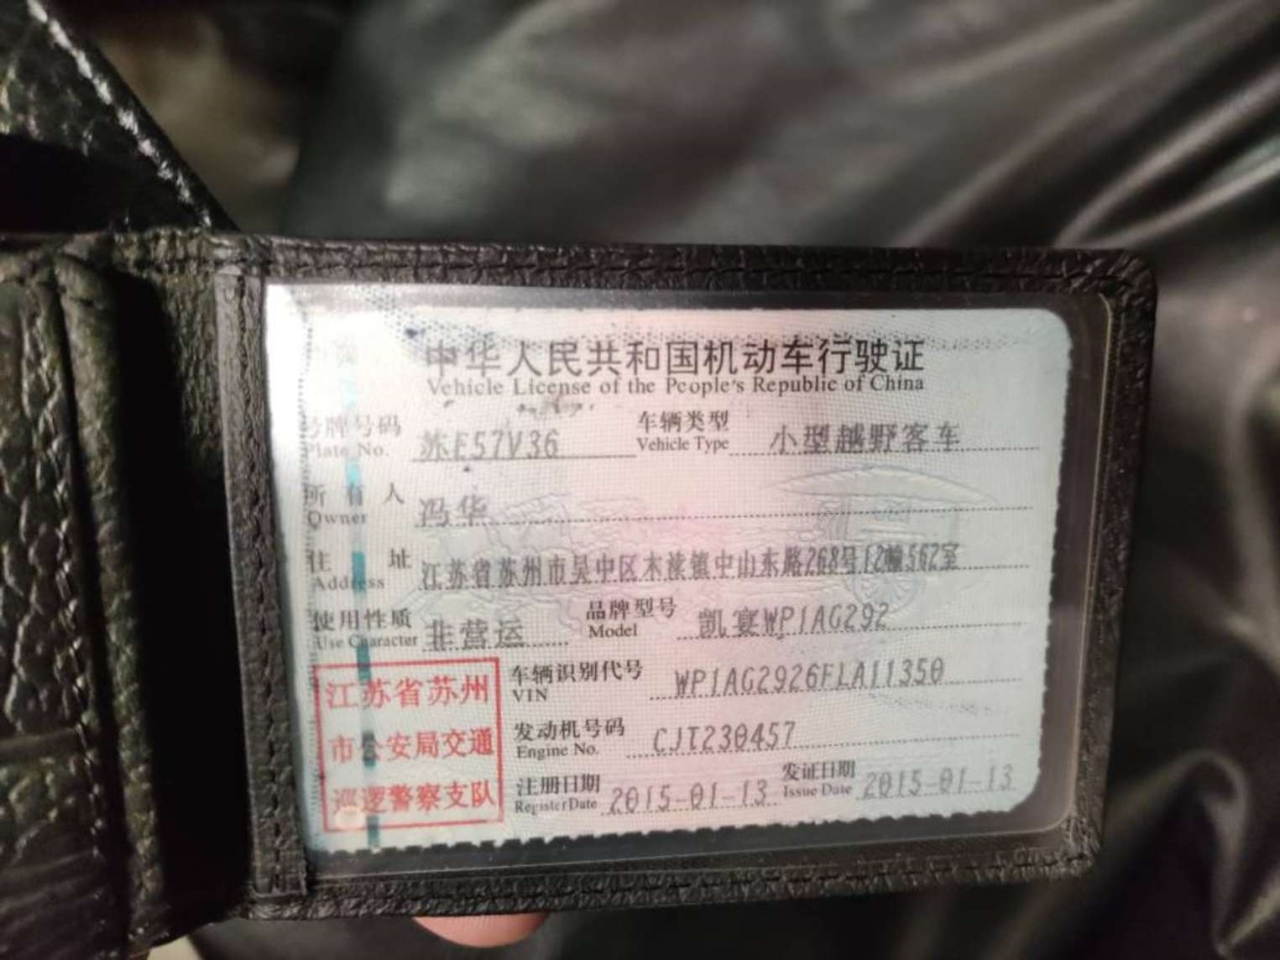 中华人民共和国机动车行驶证
Vehicle License of the People's Republic of China
号牌号码 苏E57V36 车辆类型 小型越野客车
Plate No. Vehicle Type
所有人 冯华
Owner
住址 江苏省苏州市吴中区木渎镇中山东路268号12幢562室
Address
使用性质 非营运 品牌型号 凯宴WP1AG292
Use Character Model
江苏省苏州
市公安局交通
巡逻警察支队
车辆识别代号 WP1AG2926FLA11350
VIN
发动机号码 CJT230457
Engine No.
注册日期 2015-01-13 发证日期 2015-01-13
Register Date Issue Date